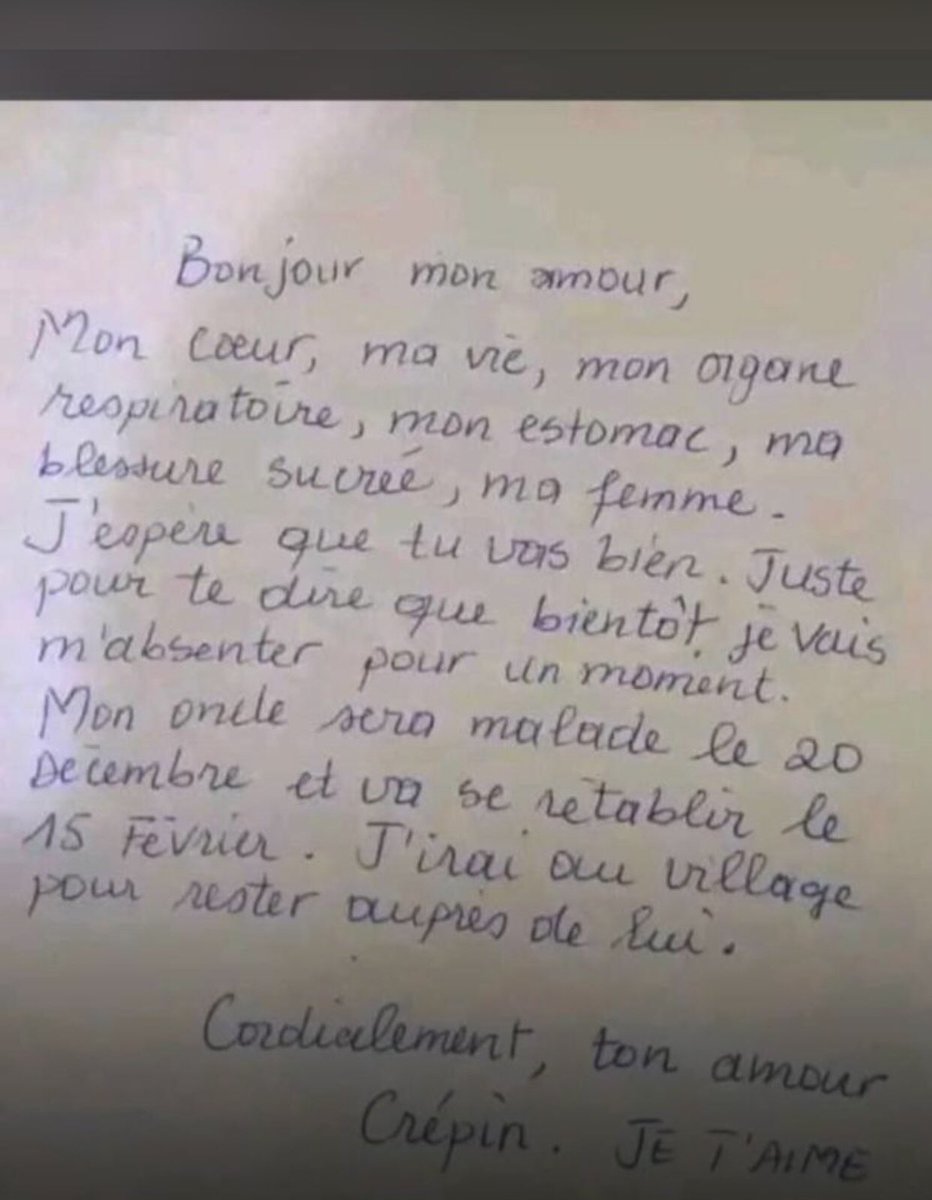 Bonjour mon amour,
Mon cœur, ma vie, mon organe
respiratoire, mon estomac, ma
blessure sucrée, ma femme.
J'espère que tu vas bien. Juste
pour te dire que bientôt je vais
m'absenter pour un moment.
Mon oncle sera malade le 20
Décembre et va se rétablir le
15 Février. J'irai au village
pour rester auprès de lui.
Cordialement, ton amour
Crépin. JE T'AIME